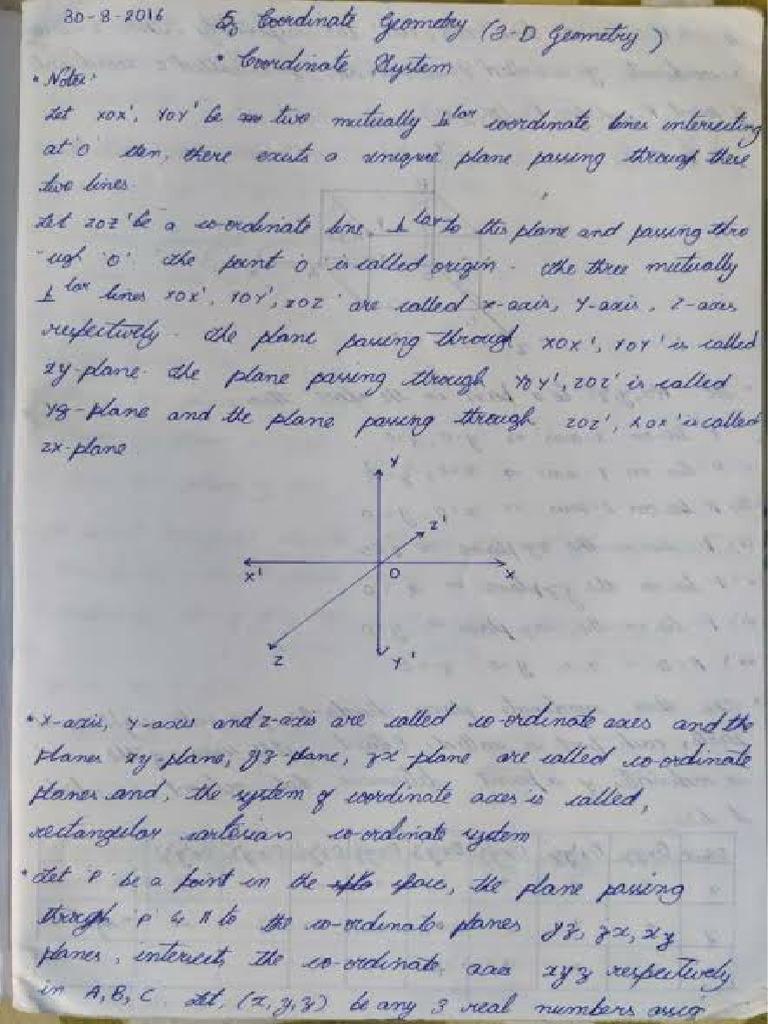 30-8-2016 5. Coordinate Geometry (3-D Geometry)
• Coordinate System
• Notes:
Let XOX', YOY' be two mutually ⊥lar coordinate lines intersecting
at 'O' then, there exists a unique plane passing through these
two lines.
Let ZOZ' be a co-ordinate line, ⊥lar to this plane and passing thro
ugh 'O'. The point 'O' is called origin. The three mutually
⊥lar lines XOX', YOY', ZOZ' are called X-axis, Y-axis, Z-axis
respectively. The plane passing through XOX', YOY' is called
xy-plane. The plane passing through YOY', ZOZ' is called
yz-plane and the plane passing through ZOZ', XOX' is called
zx-plane
Y
Z'
X' O X
Z Y'
• X-axis, Y-axis and Z-axis are called co-ordinate axes and the
planes xy-plane, yz-plane, zx-plane are called co-ordinate
planes and, the system of coordinate axes is called,
rectangular cartesian co-ordinate system
• Let 'P' be a point in the space, the plane passing
through 'P' & // to the co-ordinate planes yz, zx, xy
planes, intersect the co-ordinate axes xyz respectively
in A, B, C. Let, (x, y, z) be any 3 real numbers assig